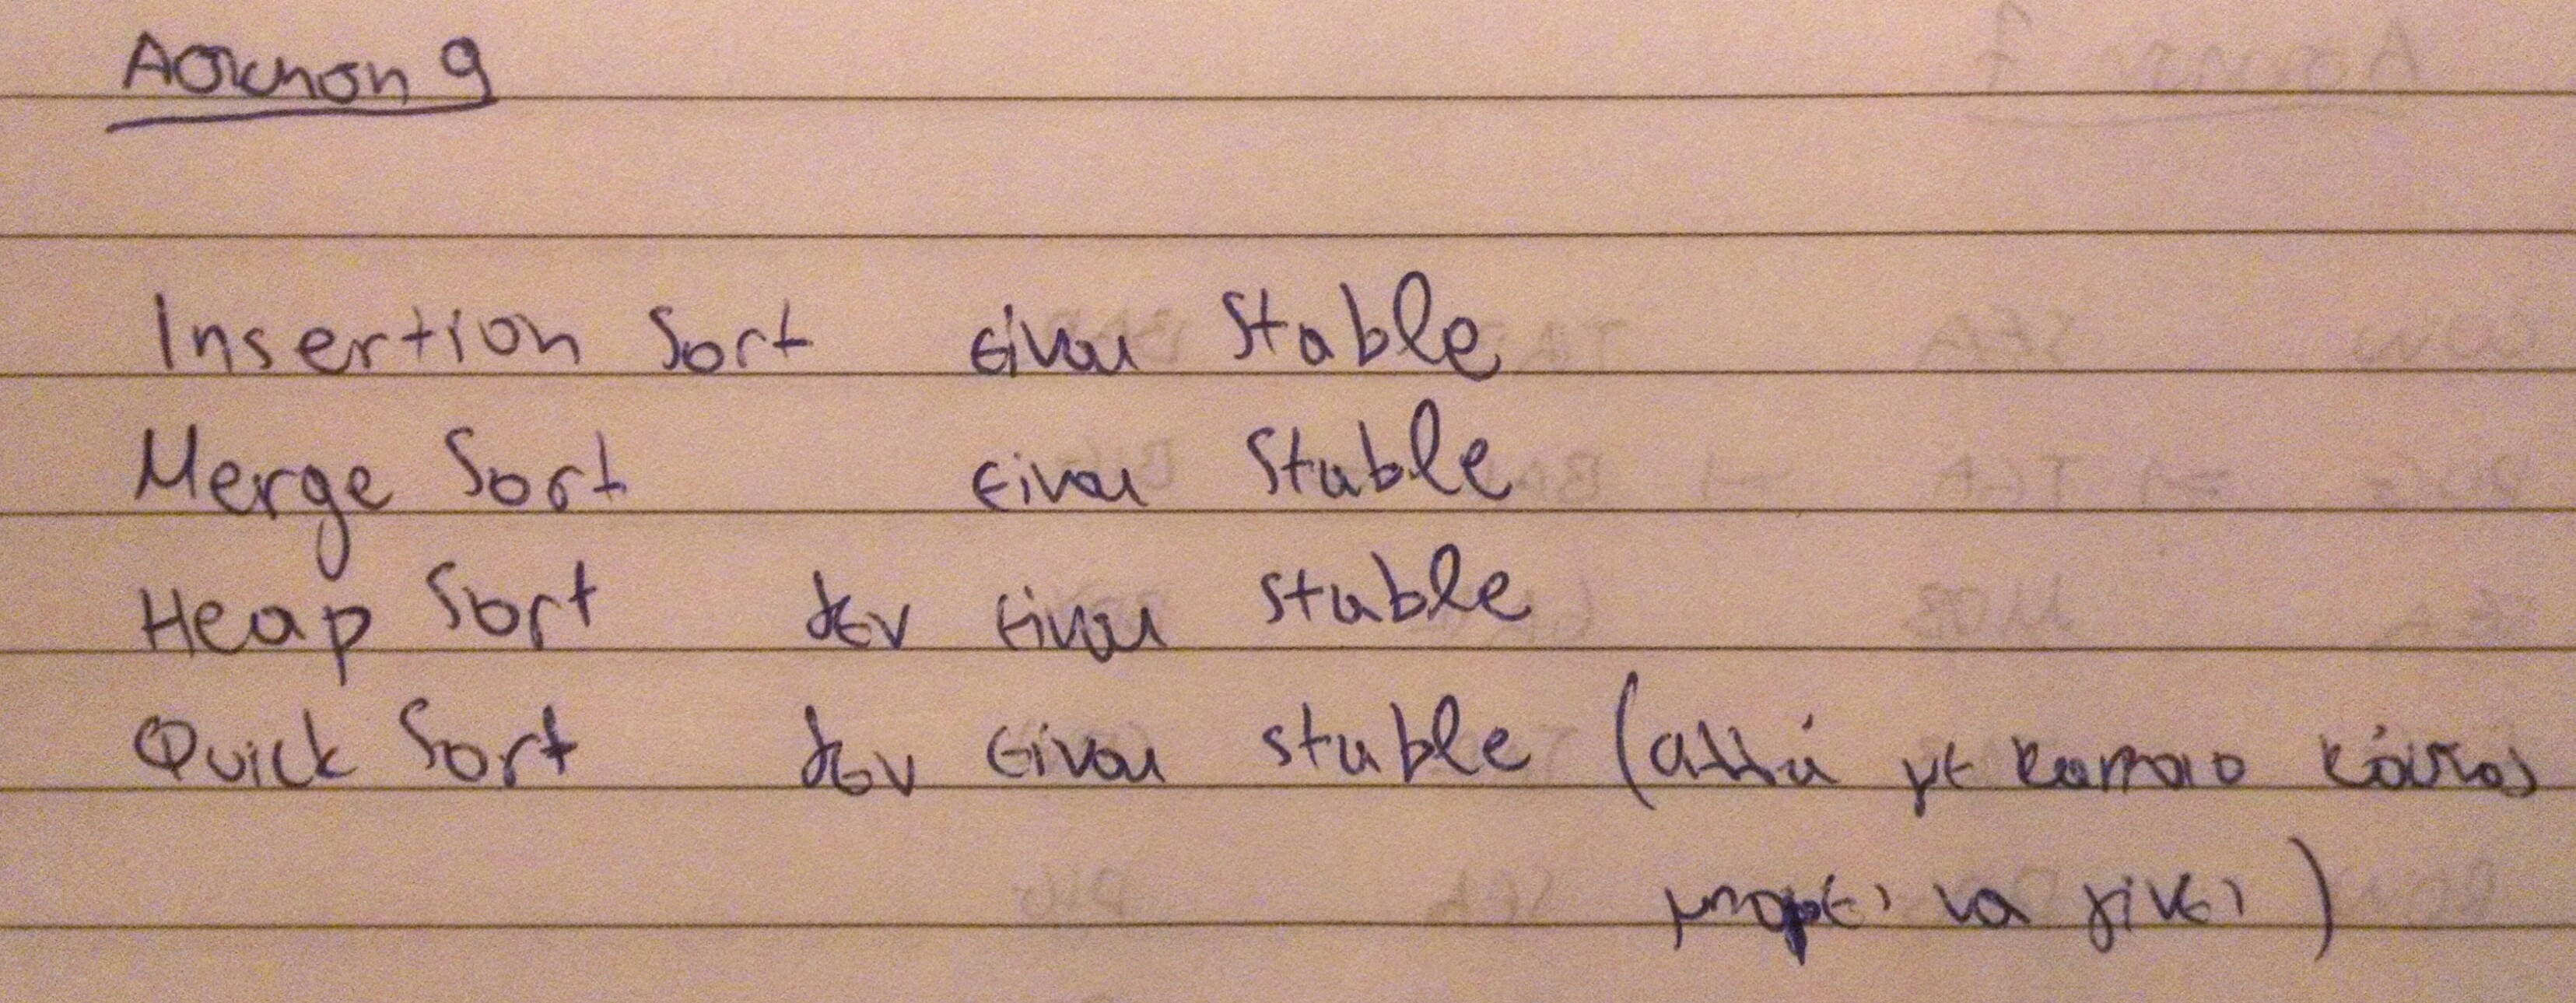 Άσκηση 9
Insertion Sort είναι Stable
Merge Sort είναι Stable
Heap Sort δεν είναι stable
Quick Sort δεν είναι stable (αλλά με καποιο κόστος
μπορεί να γίνει)